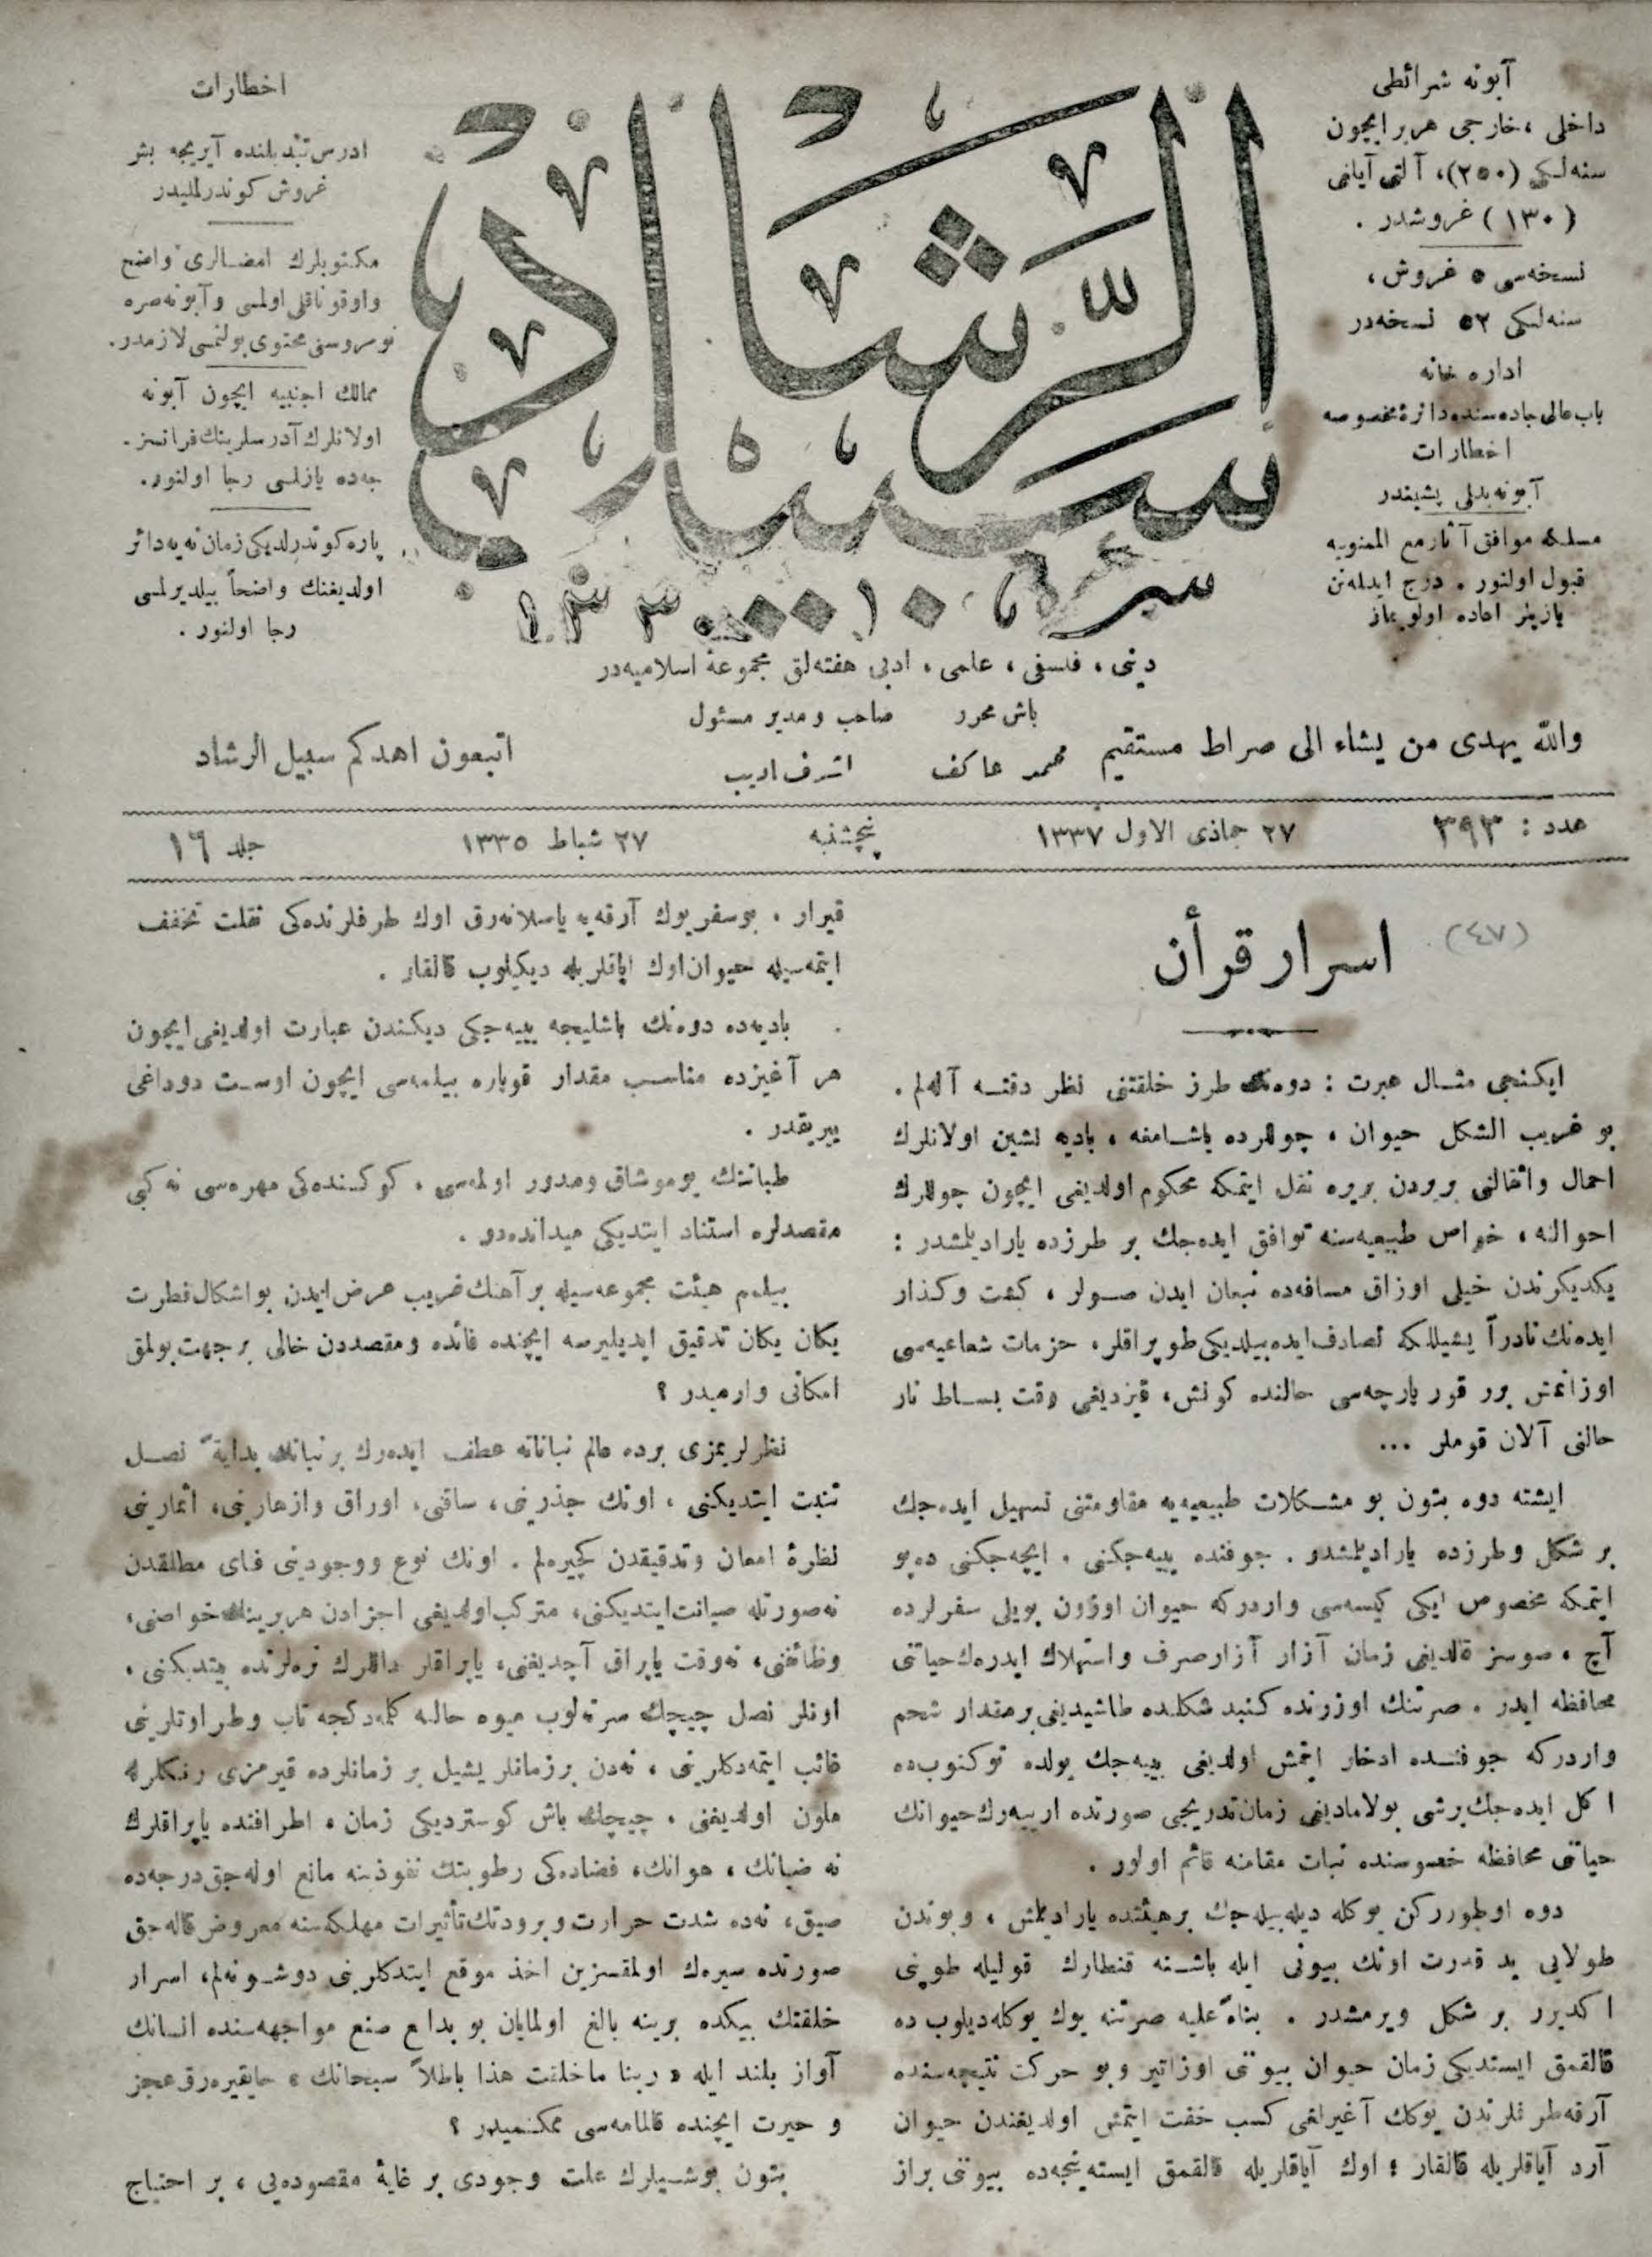 آبونه شرائطی
داخلی، خارجی هر یر ایچون
سنه‌لکی (۲۵۰)، آلتی آیلغی
(۱۳۰) غروشدر.
نسخه‌سی ۵ غروش،
سنه‌لکی ۵۲ نسخه‌در
اداره خانه
باب عالی جاده‌سنده دائرهٔ مخصوصه
اخطارات
آبونه بدلی پشیندر
مسلکه موافق آثار مع الممنونیه
قبول اولنور. درج ایدلمه‌ین
یازیلر اعاده اولونماز
سبیل الرشاد
دینی، فلسفی، علمی، ادبی هفته‌لق مجموعهٔ اسلامیه‌در
باش محرر
محمد عاکف
صاحب و مدیر مسئول
اشرف ادیب
اخطارات
ادرس تبدیلنده آیریجه بش
غروش کوندرلملیدر
مکتوبلرك امضالری واضح
واوقوناقلی اولمسی وآبونه صره
نومروسنی محتوی بولنمسی لازمدر.
ممالك اجنبیه ایچون آبونه
اولانلرك آدرسلرینك فرانسز-
جه‌ده یازلمسی رجا اولنور.
پاره کوندرلدیکی زمان نه‌یه دائر
اولدیغنك واضحاً بیلدیرلمسی
رجا اولنور.
والله یهدی من یشاء الی صراط مستقیم
اتبعون اهدکم سبیل الرشاد
عدد: ۳۹۳
۲۷ جماذی الاول ۱۳۳۷
پنجشنبه
۲۷ شباط ۱۳۳۵
جلد ۱۶
(٤٧)
اسرار قرأن
ایکنجی مثال عبرت: دوه‌نك طرز خلقتنی نظر دقته آله‌لم.
بو غریب الشکل حیوان، چوللرده یاشامغه، بادیه نشین اولانلرك
احمال واثقالنی بریردن بریره نقل ایتمکه محکوم اولدیغی ایچون چوللرك
احوالنه، خواص طبیعیه‌سنه توافق ایده‌جك بر طرزده یارادیلمشدر:
یکدیکرندن خیلی اوزاق مسافه‌ده نبعان ایدن صولر، کشت وکذار
ایده‌نك نادراً یشیللکه تصادف ایده‌بیلدیکی طوپراقلر، حزمات شعاعیه‌سی
اوزانمش برر قور پارچه‌سی حالنده کونش، قیزدیغی وقت بساط نار
حالنی آلان قوملر ...
ایشته دوه بتون بو مشکلات طبیعیه‌یه مقاومتنی تسهیل ایده‌جك
بر شکل وطرزده یارادیلمشدر. جوفنده ییه‌جکنی، ایچه‌جکنی ده‌پو
ایتمکه مخصوص ایکی کیسه‌سی واردرکه حیوان اوزون بویلی سفرلرده
آچ، صوسز قالدیغی زمان آزار آزار صرف واستهلاك ایدرەك حیاتنی
محافظه ایدر. صرتنك اوزرنده کنبد شکلنده طاشیدیغی برمقدار شحم
واردرکه جوفنده ادخار ایتمش اولدیغی ییه‌جك یولده توکنوب‌ده
اکل ایده‌جك برشی بولامادیغی زمان تدریجی صورتده اریییه‌رك حیوانك
حیاتی محافظه خصوصنده نبات مقامنه قائم اولور.
دوه اوطوررکن یوکله دیله‌بیله‌جك بر هیئتده یارادیلمش، وبوندن
طولایی ید قدرت اونك بیونی ایله باشنه قنطارك قولیله طوپنی
اکدیرر بر شکل ویرمشدر. بناءً علیه صرتنه یوك یوکله‌دیلوب ده
قالقمق ایستدیکی زمان حیوان بیونی اوزاتیر وبو حرکت نتیجه‌سنده
آرقه طرفلرندن یوکك آغیرلغی کسب خفت ایتمش اولدیغندن حیوان
آرد آیاقلریله قالقار؛ اوك آیاقلریله قالقمق ایسته‌ینجه‌ده بیوننی براز
قیرار، بوسفر یوك آرقه‌یه یاسلانه‌رق اوك طرفلرنده‌کی ثقلت تخفف
ایتمه‌سیله حیوان اوك ایاقلریله دیکیلوب قالقار.
بادیه‌ده دوه‌نك باشلیجه ییه‌جکی دیکندن عبارت اولدیغی ایچون
هر آغیزده مناسب مقدار قوپاره بیلمه‌سی ایچون اوست دوداغی
ییریقدر.
طباننك یوموشاق ومدور اولمه‌سی، کوکسنده‌کی مهره‌سی نه کبی
مقصدلره استناد ایتدیکی میدانده‌در.
بیلمم هیئت مجموعه‌سیله بر آهنك غریب عرض ایدن بو اشکال فطرت
یکان یکان تدقیق ایدیلیرسه ایچنده فائده ومقصددن خالی بر جهت بولمق
امکانی وارمیدر؟
نظرلریمزی برده عالم نباتاته عطف ایده‌رك بر نباتك بدایةً نصل
تنبت ایتدیکنی، اونك جذرینی، ساقنی، اوراق وازهارینی، اثمارینی
نظرهٔ امعان وتدقیقدن کچیره‌لم. اونك نوع ووجودینی فنای مطلقدن
نه‌صورتله صیانت ایتدیکنی، مترکب اولدیغی اجزادن هربرینك خواصنی،
وظائفنی، نه‌وقت یاپراق آچدیغنی، یاپراقلر داللرك نره‌لرنده بیتدیکنی،
اونلر نصل چیچك صرتلوب میوه حالنه کلمه‌دکجه تاب وطراوتلرینی
غائب ایتمه‌دکلرینی، نه‌دن بر زمانلر یشیل بر زمانلرده قیرمزی رنکلرله
ملون اولدیغنی، چیچك باش کوستردیکی زمان، اطرافنده یاپراقلرك
نه ضیانك، هوانك، فضاده‌کی رطوبتك نفوذینه مانع اوله‌جق درجه‌ده
صیق، نه‌ده شدت حرارت وبرودتك تأثیرات مهلکه‌سنه معروض قاله‌جق
صورتده سیره‌ك اولمقسزین اخذ موقع ایتدکلرینی دوشونه‌لم، اسرار
خلقتك بیکده برینه بالغ اولمایان بو بدایع صنع مواجهه‌سنده انسانك
آواز بلند ایله «ربنا ماخلقت هذا باطلاً سبحانك» حایقیره‌رق عجز
و حیرت ایچنده قالمامه‌سی ممکنمیدر؟
بتون بوشیلرك علت وجودی بر غایهٔ مقصوده‌یی، بر احتیاج